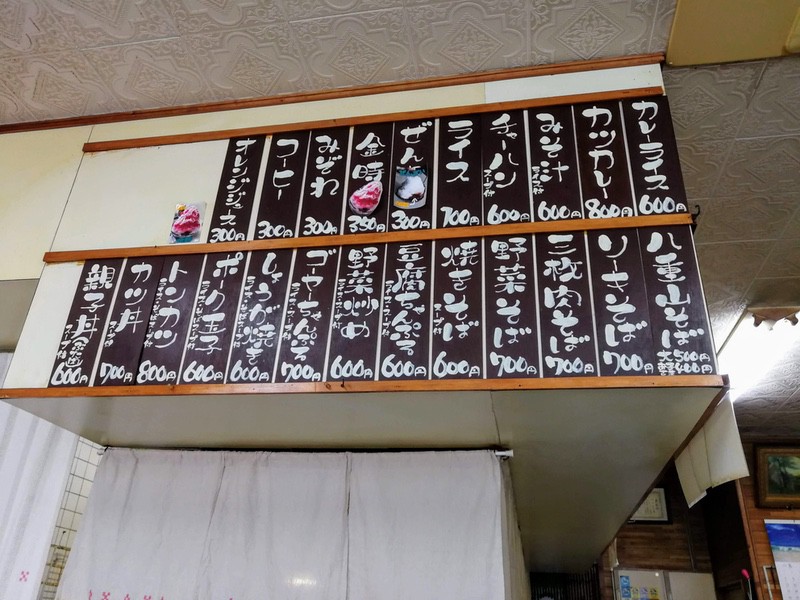 カレーライス 600円
カツカレー 800円
みそ汁 ライス付 600円
チャーハン スープ付 600円
ライス 700円
ぜんざい 300円
金時 350円
みぞれ 300円
コーヒー 300円
オレンジジュース 300円
八重山そば 大 500円 400円
ソーキそば 700円
三枚肉そば 700円
野菜そば 700円
焼きそば スープ付 600円
豆腐ちゃんぷるー 600円
野菜炒め ライス・スープ付 600円
ゴーヤちゃんぷるー ライス・スープ付 700円
しょうが焼き 600円
ポーク玉子 600円
トンカツ 800円
カツ丼 スープ付 700円
親子丼 スープ付 600円